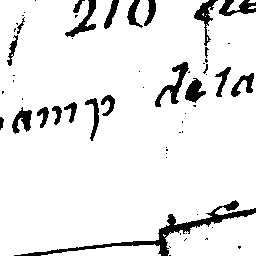 210
amp deta